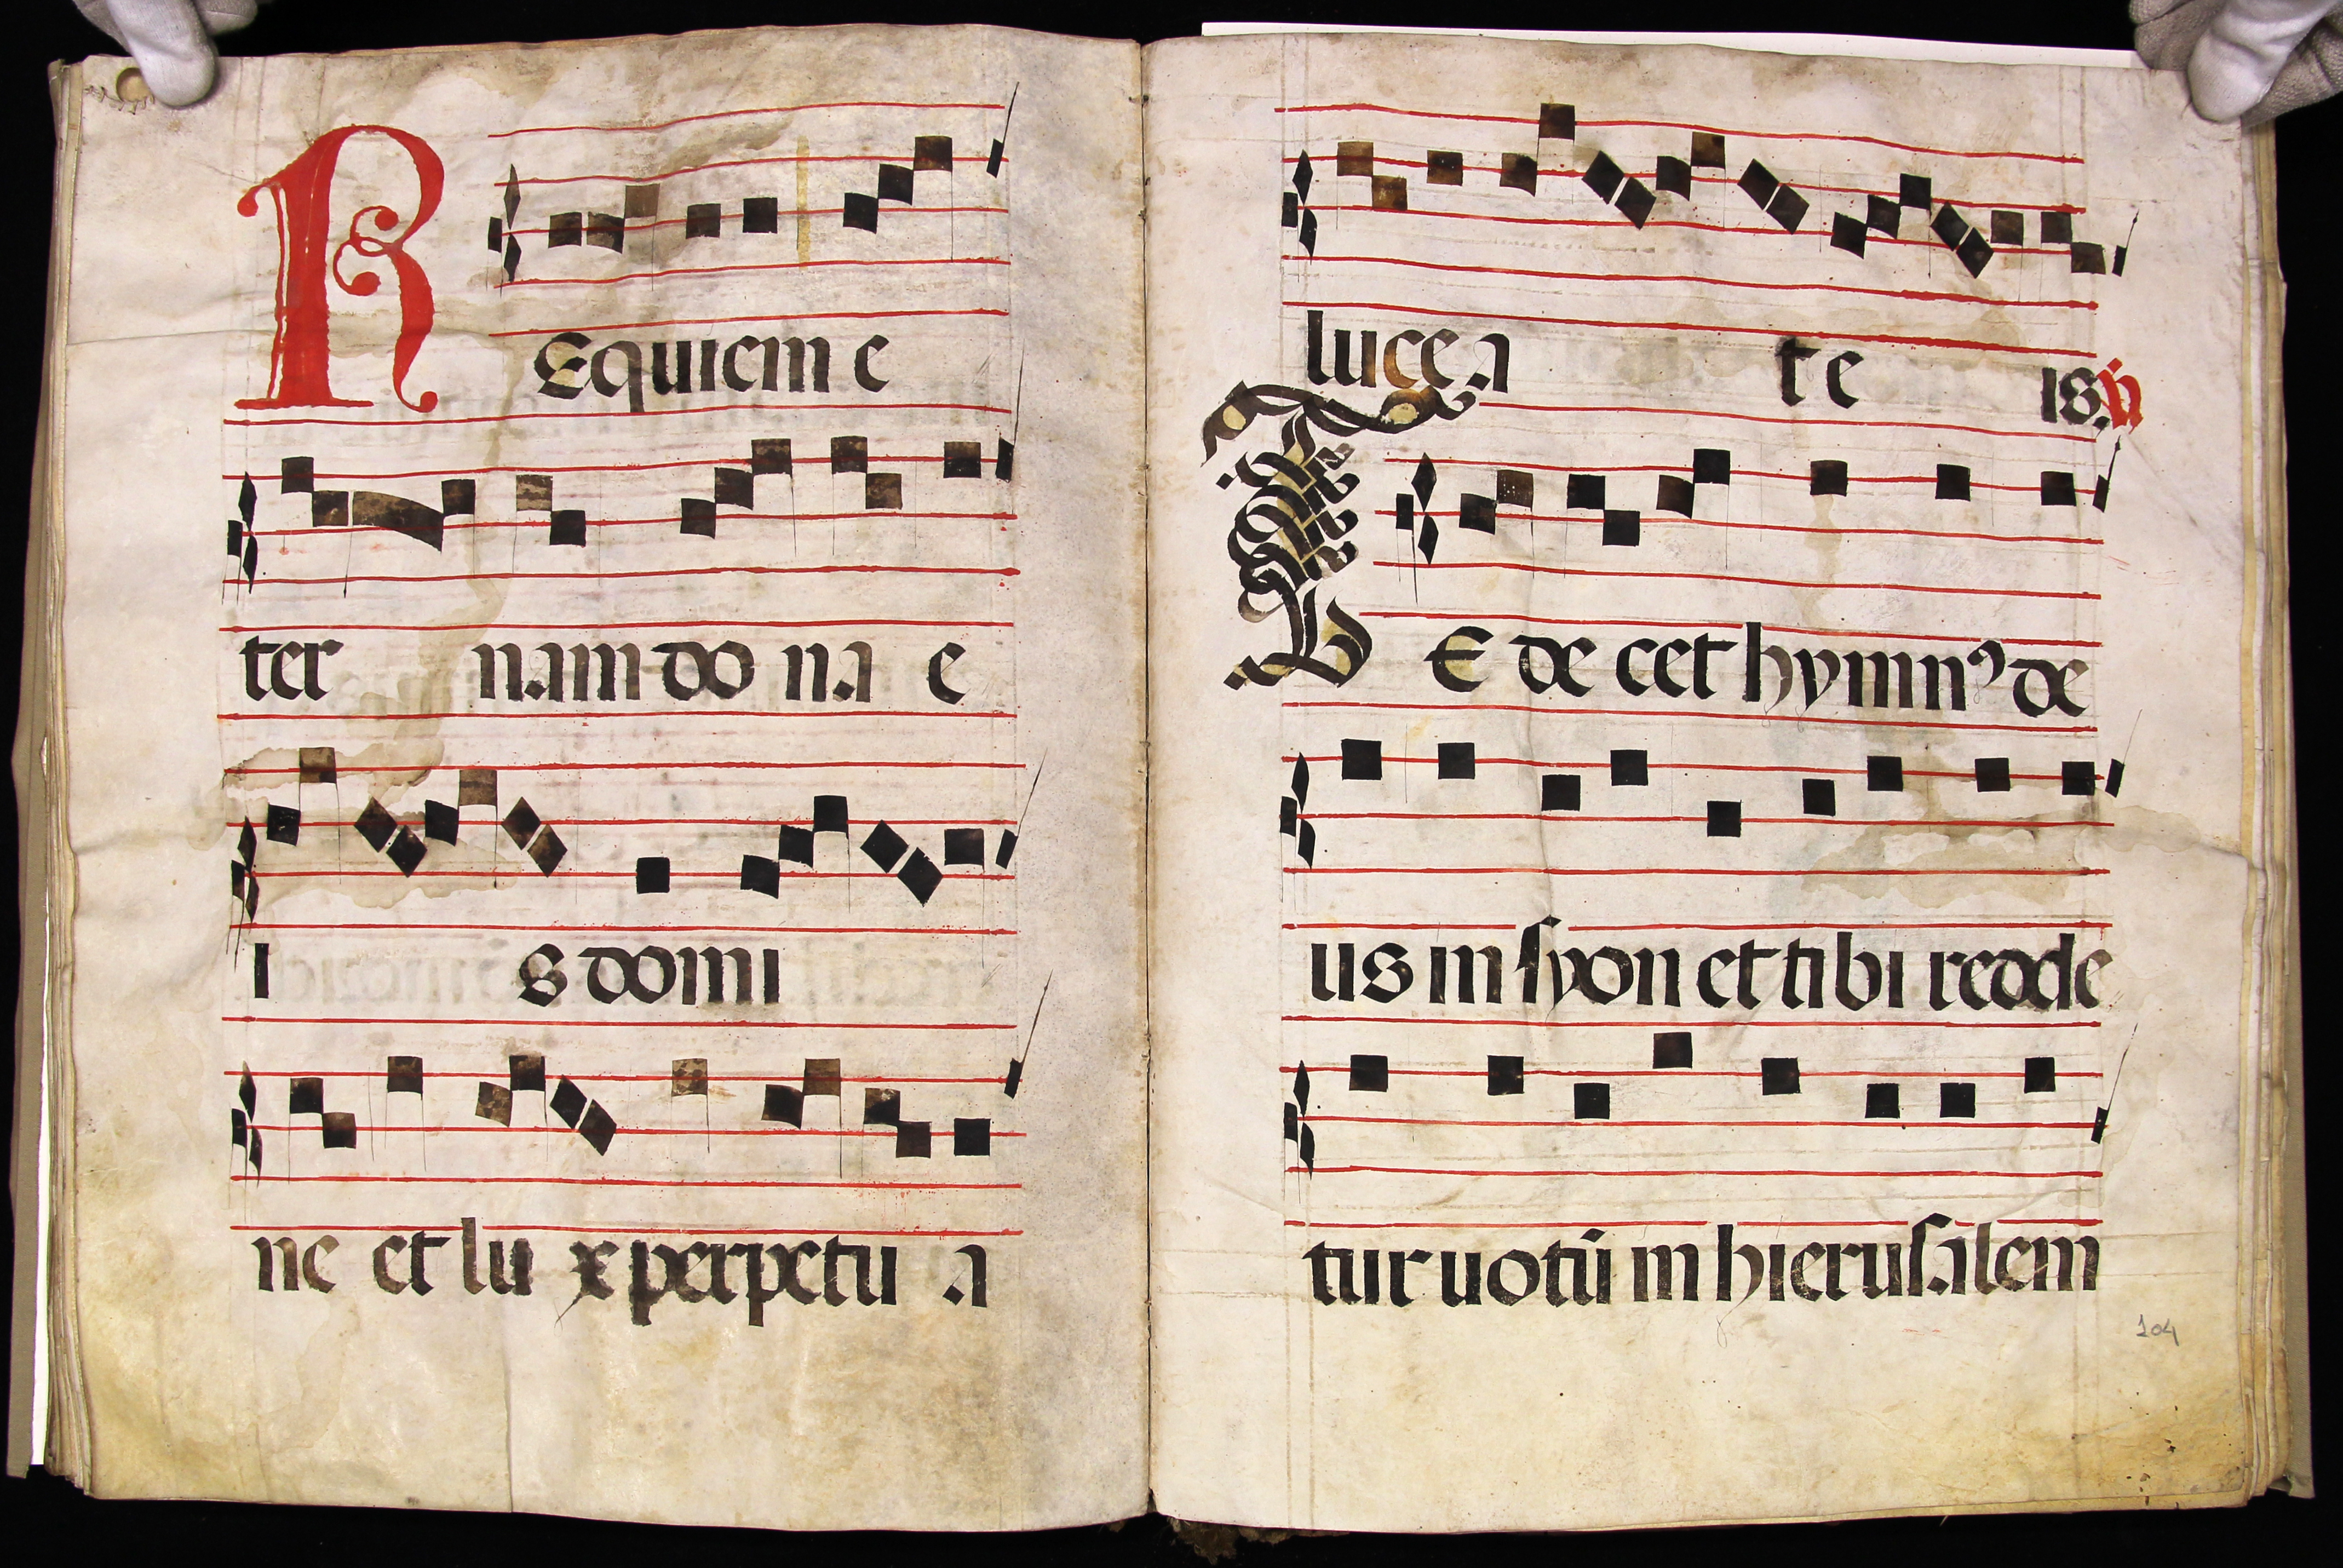 REquiem e
ter nam do na e
i s domi
ne et lu x perpetu a
lucea te is. ℣
TE decet hymnꝰ de
us in syon et tibi redde
tur uotū in hierusalem
104